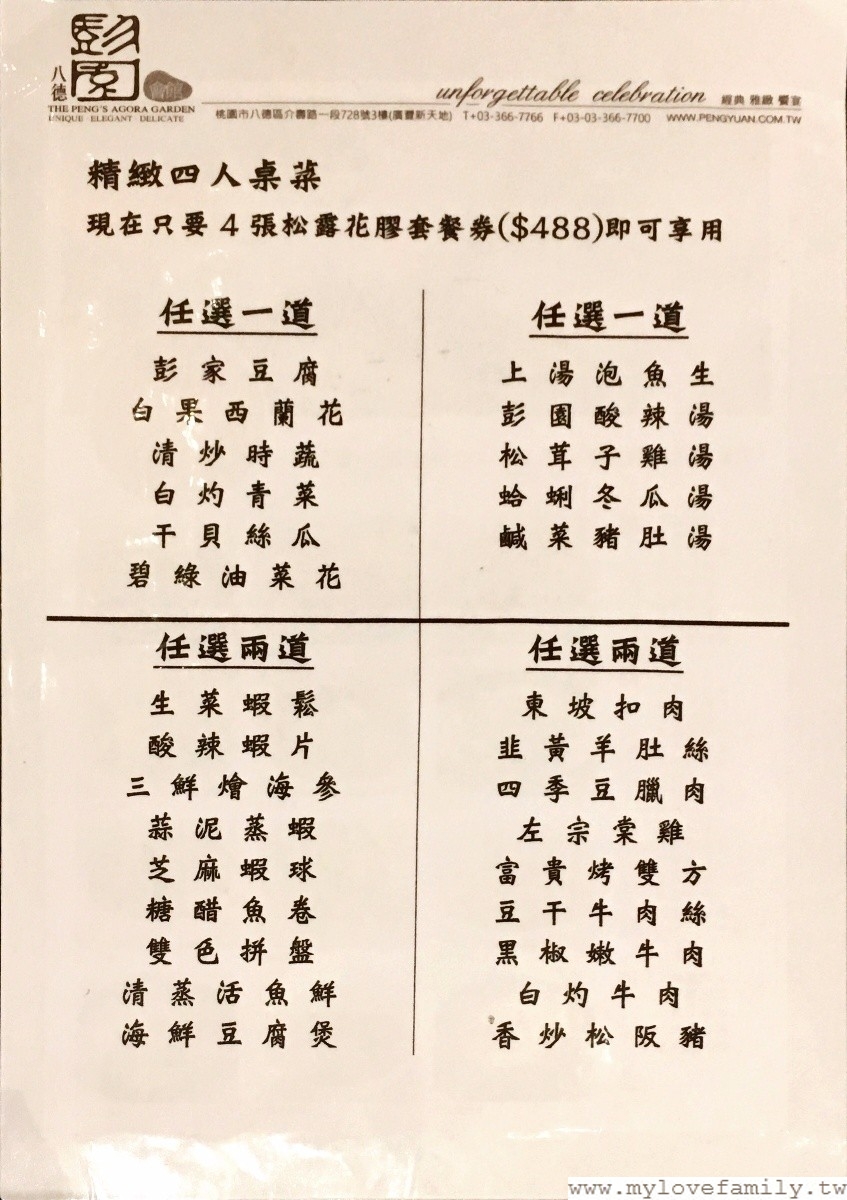 彭園
八德
會館
THE PENG'S AGORA GARDEN
UNIQUE ELEGANT DELICATE
unforgettable celebration 經典 雅緻 饗宴
桃園市八德區介壽路一段728號3樓(廣豐新天地) T+03-366-7766 F+03-03-366-7700 WWW.PENGYUAN.COM.TW
精緻四人桌菜
現在只要 4 張松露花膠套餐券($488)即可享用
任選一道
彭家豆腐
白果西蘭花
清炒時蔬
白灼青菜
干貝絲瓜
碧綠油菜花
任選一道
上湯泡魚生
彭園酸辣湯
松茸子雞湯
蛤蜊冬瓜湯
鹹菜豬肚湯
任選兩道
生菜蝦鬆
酸辣蝦片
三鮮燴海參
蒜泥蒸蝦
芝麻蝦球
糖醋魚卷
雙色拼盤
清蒸活魚鮮
海鮮豆腐煲
任選兩道
東坡扣肉
韭黃羊肚絲
四季豆臘肉
左宗棠雞
富貴烤雙方
豆干牛肉絲
黑椒嫩牛肉
白灼牛肉
香炒松阪豬
www.mylovefamily.tw